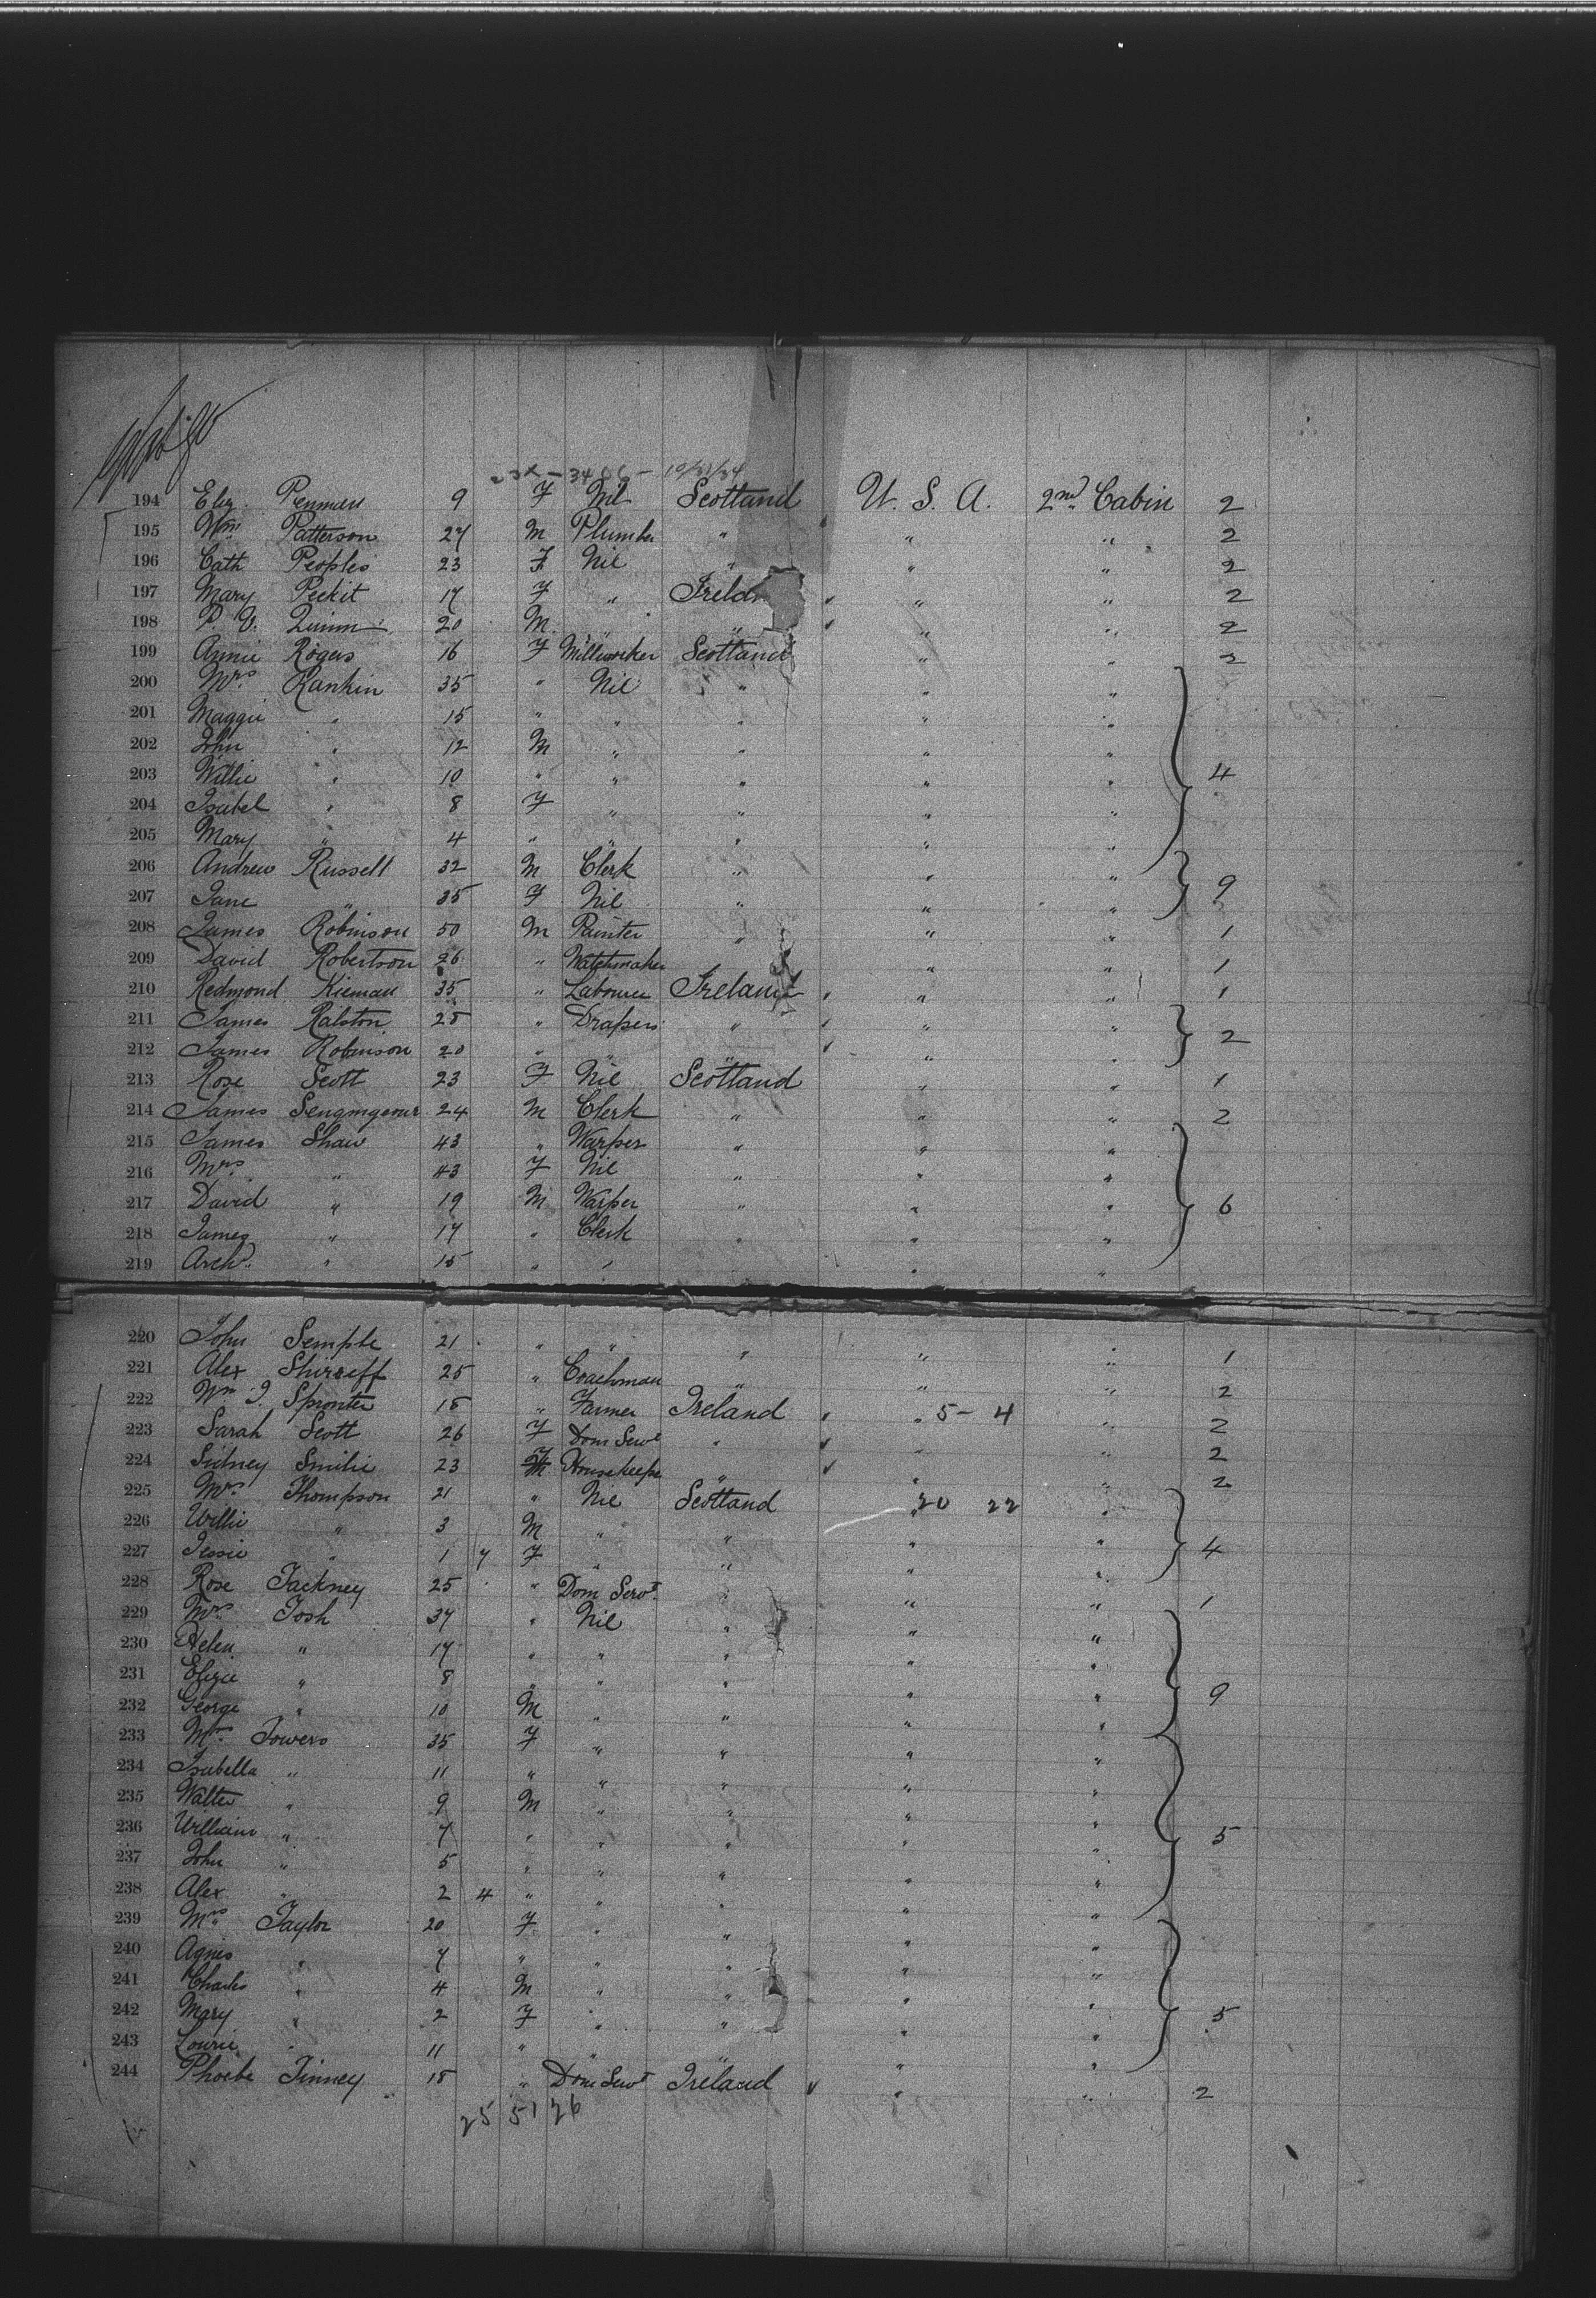 194 Eliz. Penman 9 F Nil Scotland U. S. A. 2nd Cabin 2
195 Wm. Patterson 27 M Plumber " " " 2
196 Cath Peoples 23 F Nil " " " 2
197 Mary Peckit 17 F " Ireld " " 2
198 P. V. Quinn 20 M. " " " " 2
199 Annie Rogers 16 F Millworker Scotland " " 2
200 Mrs. Rankin 35 " Nil " " "
201 Maggie " 15 " " " " "
202 John " 12 M " " " "
203 Willie " 10 " " " " " 4
204 Isabel " 8 F " " " "
205 Mary " 4 " " " " "
206 Andrew Russell 32 M Clerk " " "
207 Jane " 35 F Nil " " "
208 James Robinson 50 M Painter " " " 1
209 David Robertson 26 " Watchmaker " " 1
210 Redmond Kiernan 35 " Labourer Ireland " " 1
211 James Ralston 25 " Drapers " " " 2
212 James Robinson 20 " " " " "
213 Rose Scott 23 F Nil Scotland " " 1
214 James 24 M Clerk " " " 2
215 James Shaw 43 " Warper " " "
216 Mrs. " 43 F Nil " " "
217 David " 19 M Warper " " " 6
218 James " 17 " Clerk " " "
219 Archd. " 15 " " " "
220 John Semple 21 " " " " " 1
221 Alex Shirreff 25 " Coachman " " " 2
222 Wm J. 18 " Farmer Ireland " 5 - 4 " 2
223 Sarah Scott 26 F Dom Servt " " " 2
224 Sidney Smilie 23 F Housekeeper " " " 2
225 Mrs. Thompson 21 " Nil Scotland " 20 22 "
226 Willie " 3 M " " " "
227 Jessie " 1 7 F " " " " 4
228 Rose Tackney 25 " Dom Servt. " " " 1
229 Mrs. Tosh 37 " Nil " " "
230 Helen " 17 " " " " "
231 Elizie " 8 " " " " "
232 George " 10 M " " " " 9
233 Mrs. Towers 35 F " " " "
234 Isabella " 11 " " " " "
235 Walter " 9 M " " " "
236 William " 7 " " " " " 5
237 John " 5 " " " " "
238 Alex " 2 4 " " " " "
239 Mrs. Taylor 20 F " " " "
240 Agnes " 7 " " " " "
241 Charles " 4 M " " " "
242 Mary " 2 F " " " " 5
243 " 11 " " " " "
244 Phoebe Tinney 18 " Dom Servt Ireland " " 2
25 51 26